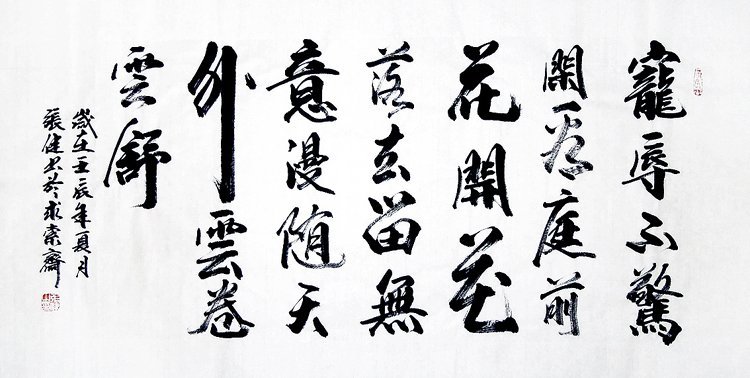 寵辱不驚
閑看庭前
花開花
落去留無
意漫随天
外雲卷
雲舒
歲在壬辰年夏月
張健書於求索齋